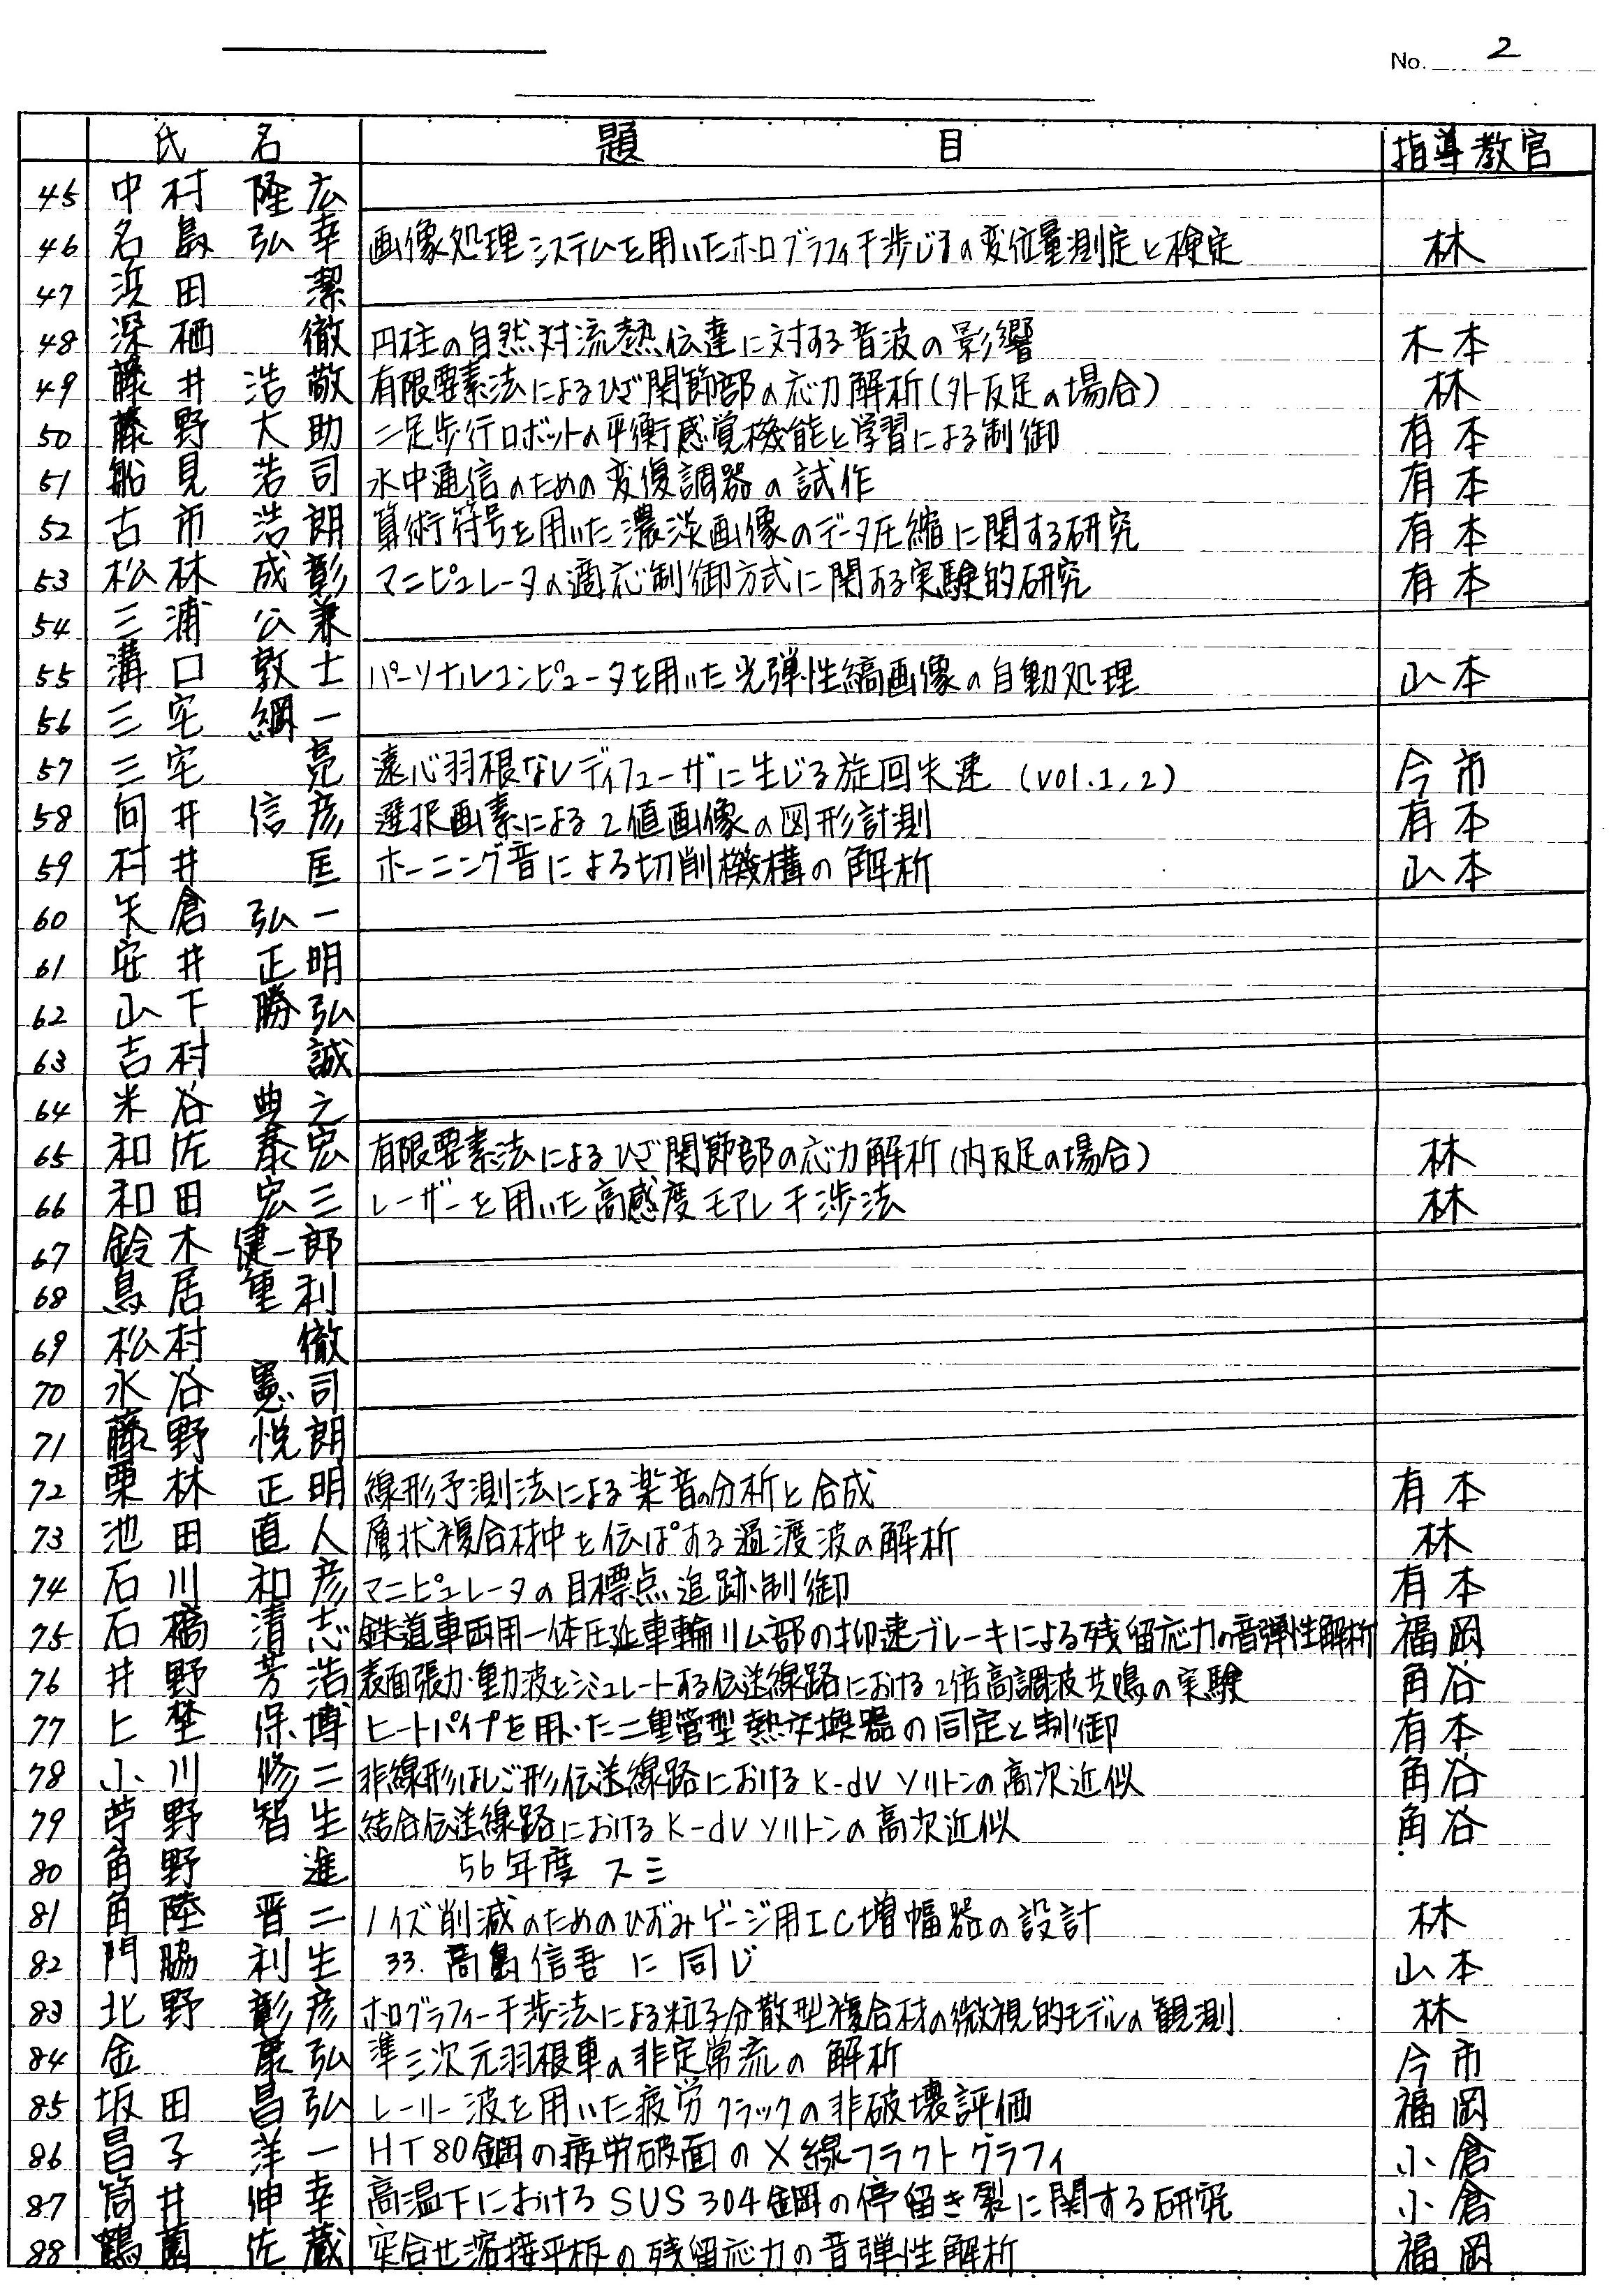 No. 2
氏 名 題 目 指導教官
45 中村 隆広
46 名島 弘幸 画像処理システムを用いたホログラフィ干渉じまの変位量測定と検定 林
47 浜田 潔
48 深栖 徹 円柱の自然対流熱伝達に対する音波の影響 木本
49 藤井 浩敬 有限要素法によるひざ関節部の応力解析(外反足の場合) 林
50 藤野 大助 二足歩行ロボットの平衡感覚機能と学習による制御 有本
51 船見 浩司 水中通信のための変復調器の試作 有本
52 古市 浩朗 算術符号を用いた濃淡画像のデータ圧縮に関する研究 有本
53 松林 成彰 マニピュレータの適応制御方式に関する実験的研究 有本
54 三浦 公兼
55 溝口 敦士 パーソナルコンピュータを用いた光弾性縞画像の自動処理 山本
56 三宅 綱一
57 三宅 亮 遠心羽根なしディフューザに生じる旋回失速 (vol.1,2) 今市
58 向井 信彦 選択画素による2値画像の図形計測 有本
59 村井 匡 ホーニング音による切削機構の解析 山本
60 矢倉 弘一
61 安井 正明
62 山下 勝弘
63 吉村 誠
64 米谷 典之
65 和佐 泰宏 有限要素法によるひざ関節部の応力解析(内反足の場合) 林
66 和田 宏三 レーザーを用いた高感度モアレ干渉法 林
67 鈴木 健一郎
68 鳥居 重利
69 松村 徹
70 水谷 憲司
71 藤野 悦朗
72 栗林 正明 線形予測法による楽音の分析と合成 有本
73 池田 直人 層状複合材中を伝ぱする過渡波の解析 林
74 石川 和彦 マニピュレータの目標点追跡制御 有本
75 石橋 清志 鉄道車両用一体圧延車輪リム部の抑速ブレーキによる残留応力の音弾性解析 福岡
76 井野 芳浩 表面張力・重力波をシミュレートする伝送線路における2倍高調波共鳴の実験 角谷
77 上埜 保博 ヒートパイプを用いた二重管型熱交換器の同定と制御 有本
78 小川 修二 非線形はしご形伝送線路におけるK-dVソリトンの高次近似 角谷
79 芦野 智生 結合伝送線路におけるK-dVソリトンの高次近似 角谷
80 角野 進 56年度 スミ
81 角陸 晋二 ノイズ削減のためのひずみゲージ用IC増幅器の設計 林
82 門脇 利生 33. 高島信吾 に 同じ 山本
83 北野 彰彦 ホログラフィー干渉法による粒子分散型複合材の微視的モデルの観測 林
84 金 康弘 準三次元羽根車の非定常流の解析 今市
85 坂田 昌弘 レーリー波を用いた疲労クラックの非破壊評価 福岡
86 昌子 洋一 HT80鋼の疲労破面のX線フラクトグラフィ 小倉
87 筒井 伸幸 高温下におけるSUS304鋼の停留き裂に関する研究 小倉
88 鶴薗 佐蔵 突合せ溶接平板の残留応力の音弾性解析 福岡